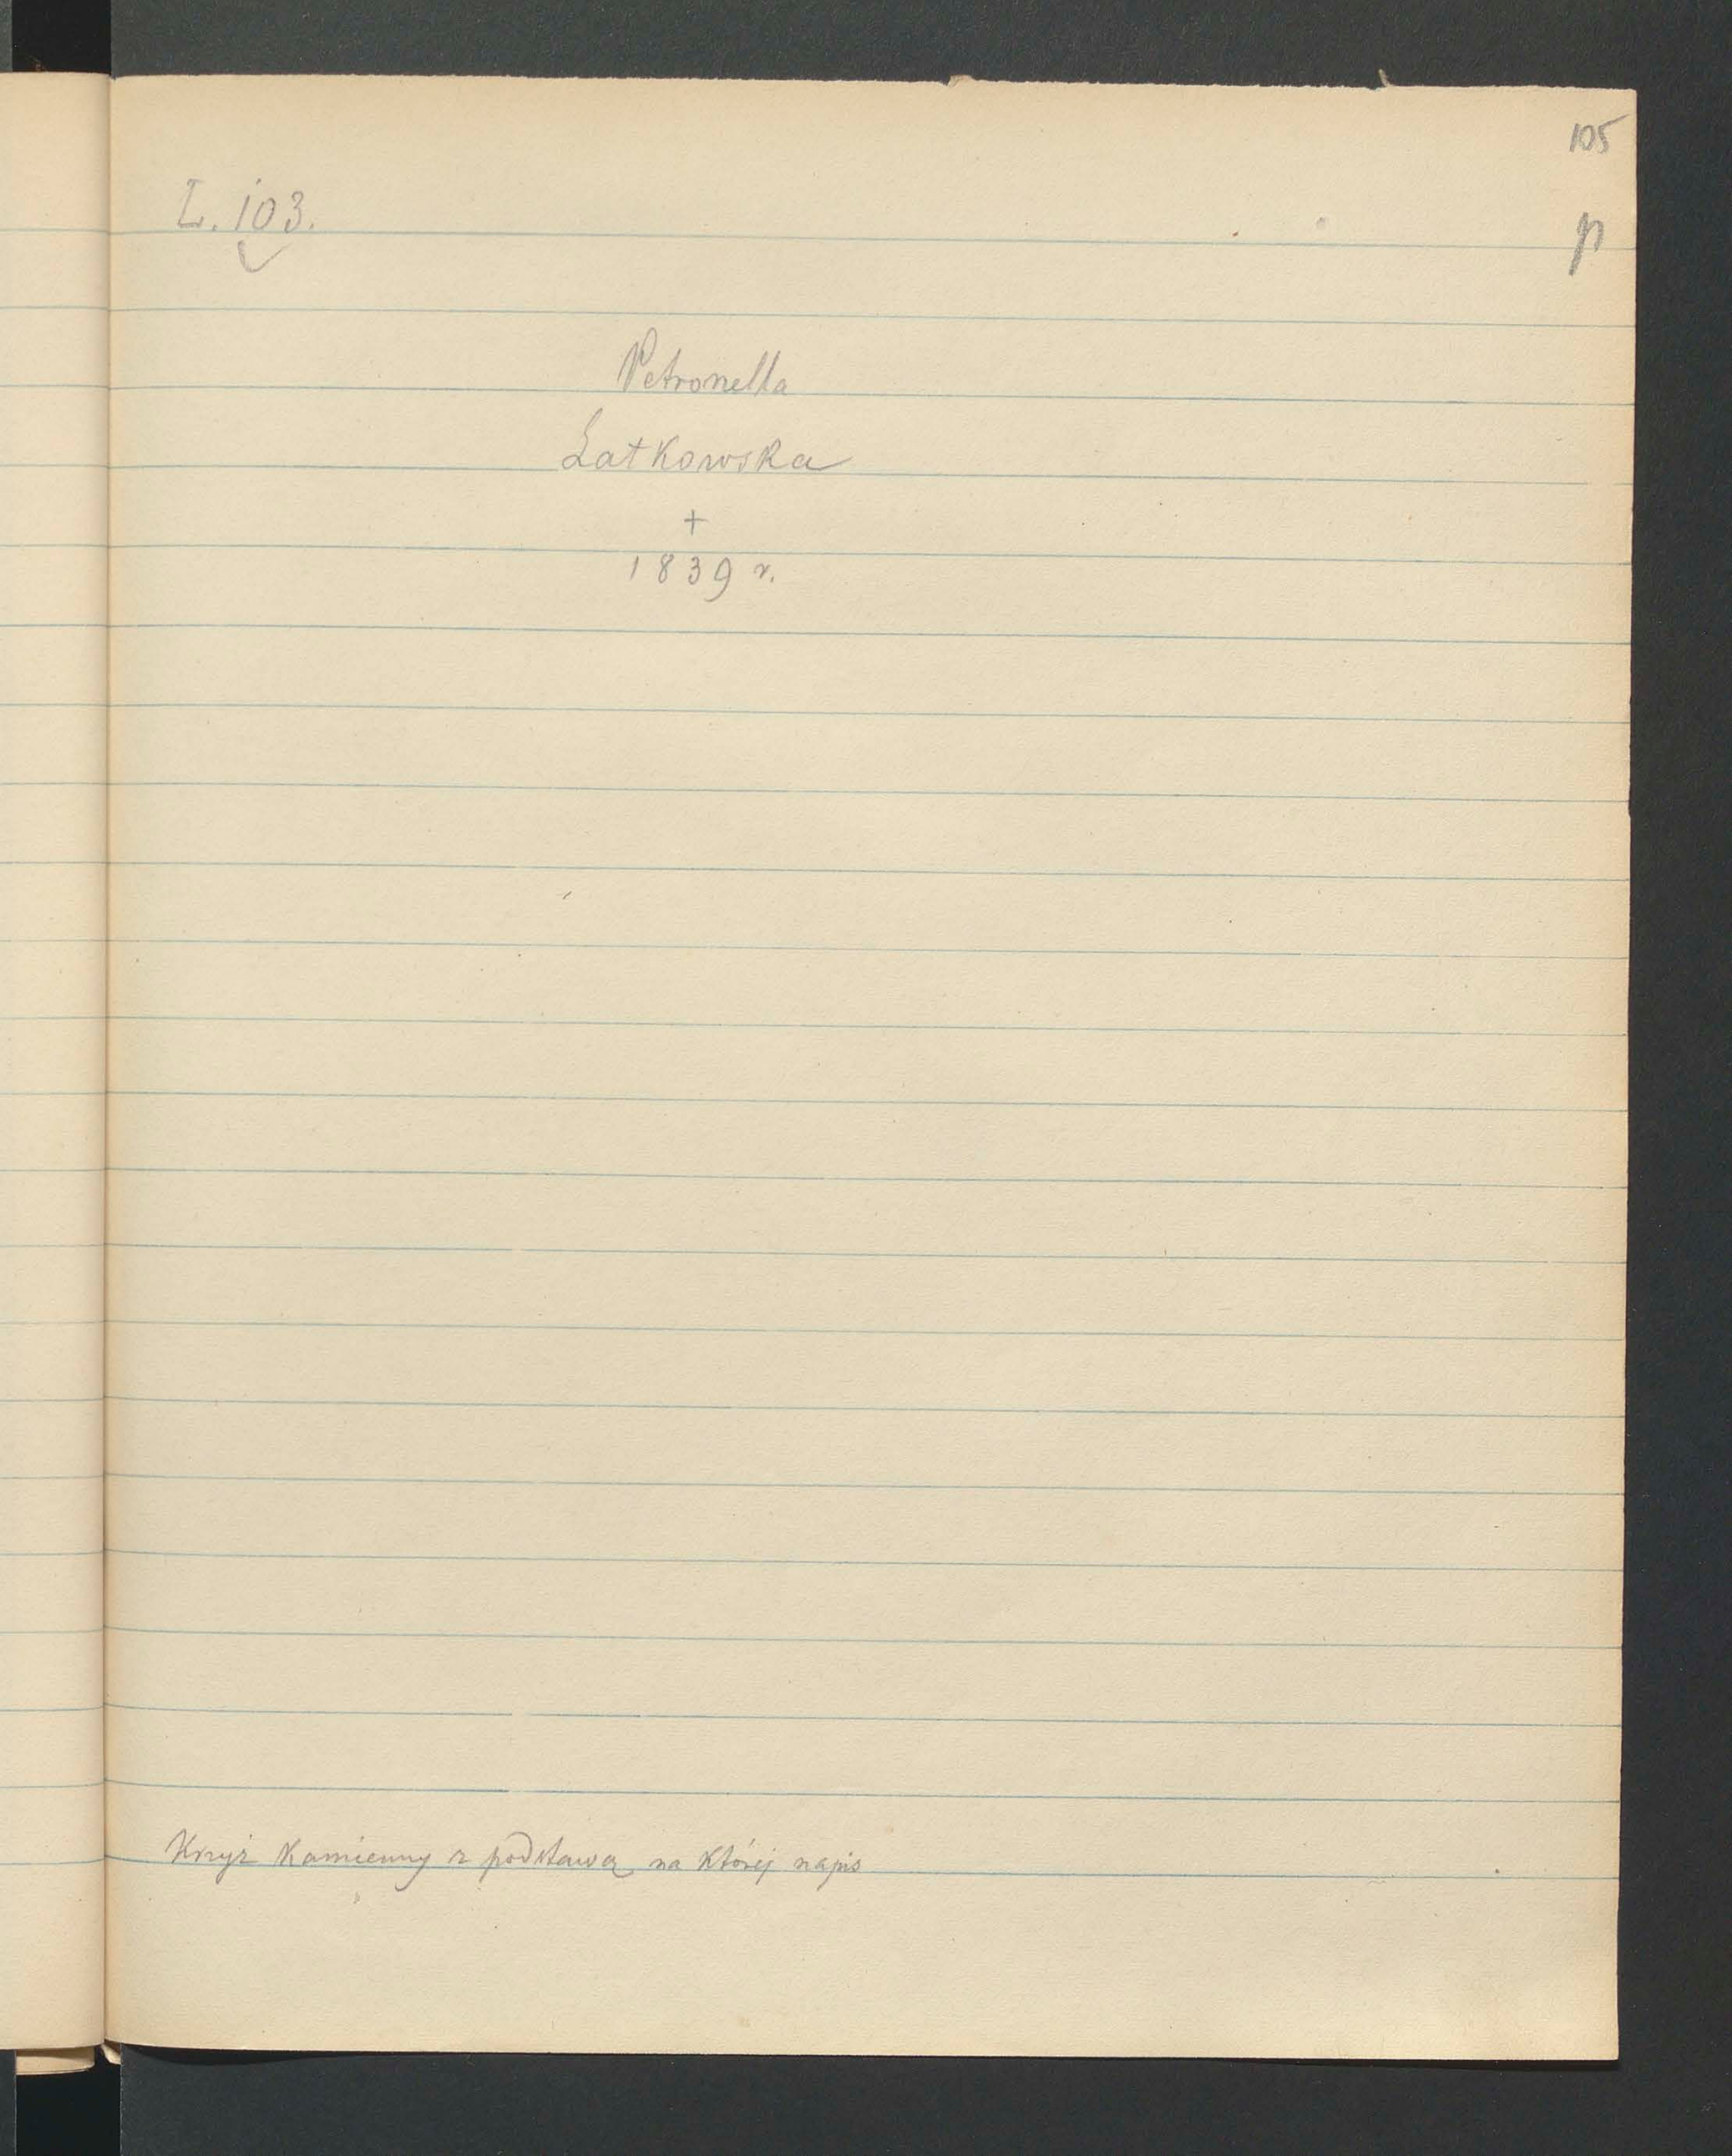 105
L. 103.
p
Petronella
Latkowska
+
1839 r.
Krzyż kamienny z podstawą na której napis